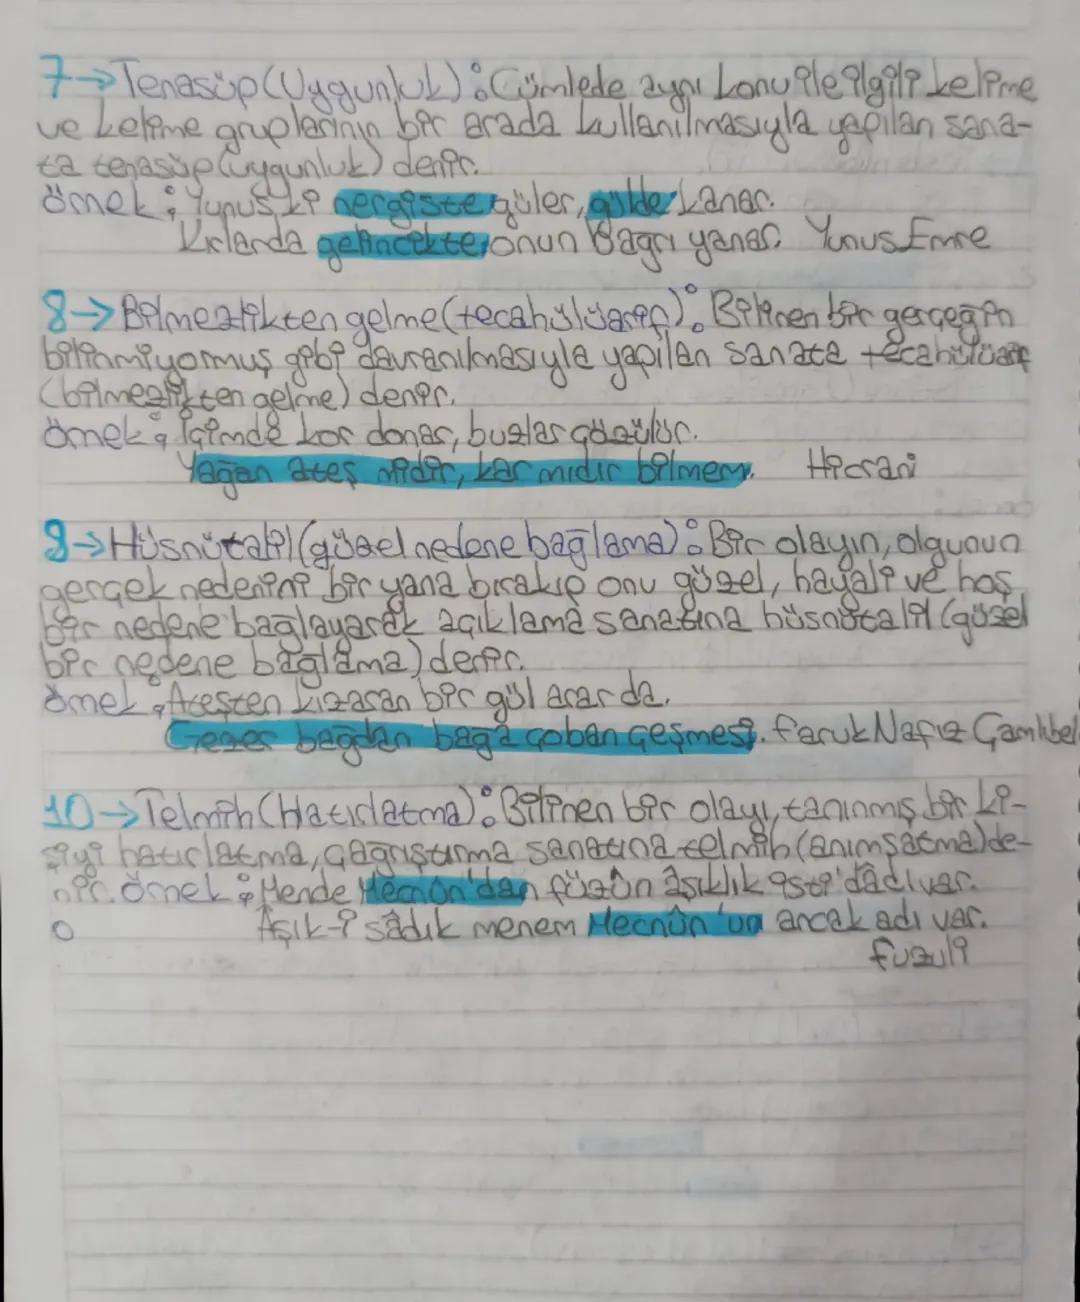 7→Tenasüp (Uygunluk): Cümlede aynı konu ile ilgili kelime
ve kelime gruplarının bir arada kullanılmasıyla yapılan sana-
ta tenasüp (uygunluk) denir.
örnek: Yunus ki nergiste güler, gülde kanar.
Kırlarda gelincikte, onun bağrı yanar. Yunus Emre
8→ Bilmezlikten gelme (tecahülüarif): Bilinen bir gerçeğin
bilinmiyormuş gibi davranılmasıyla yapılan sanata tecahülüarif
(bilmezlikten gelme) denir.
örnek: İçimde kor donar, buzlar çözülür.
Yağan ateş midir, kar mıdır bilmem. Hicrani
9→Hüsnütalil (güzel nedene bağlama): Bir olayın, olgunun
gerçek nedenini bir yana bırakıp onu güzel, hayali ve hoş
bir nedene bağlayarak açıklama sanatına hüsnütalil (güzel
bir nedene bağlama) denir.
örnek: Ateşten kızaran bir gül arar da.
Gezer bağdan bağa çoban çeşmesi. Faruk Nafız Çamlıbel
10→Telmih (Hatırlatma): Bilinen bir olayı, tanınmış bir ki-
şiyi hatırlatma, çağrıştırma sanatına telmih (anımsatma) de-
nir. Örnek: Mende Mecnûn'dan füzûn âşıklık isti'dâdı var.
Âşık-ı sâdık menem Mecnûn'un ancak adı var.
Fuzuli